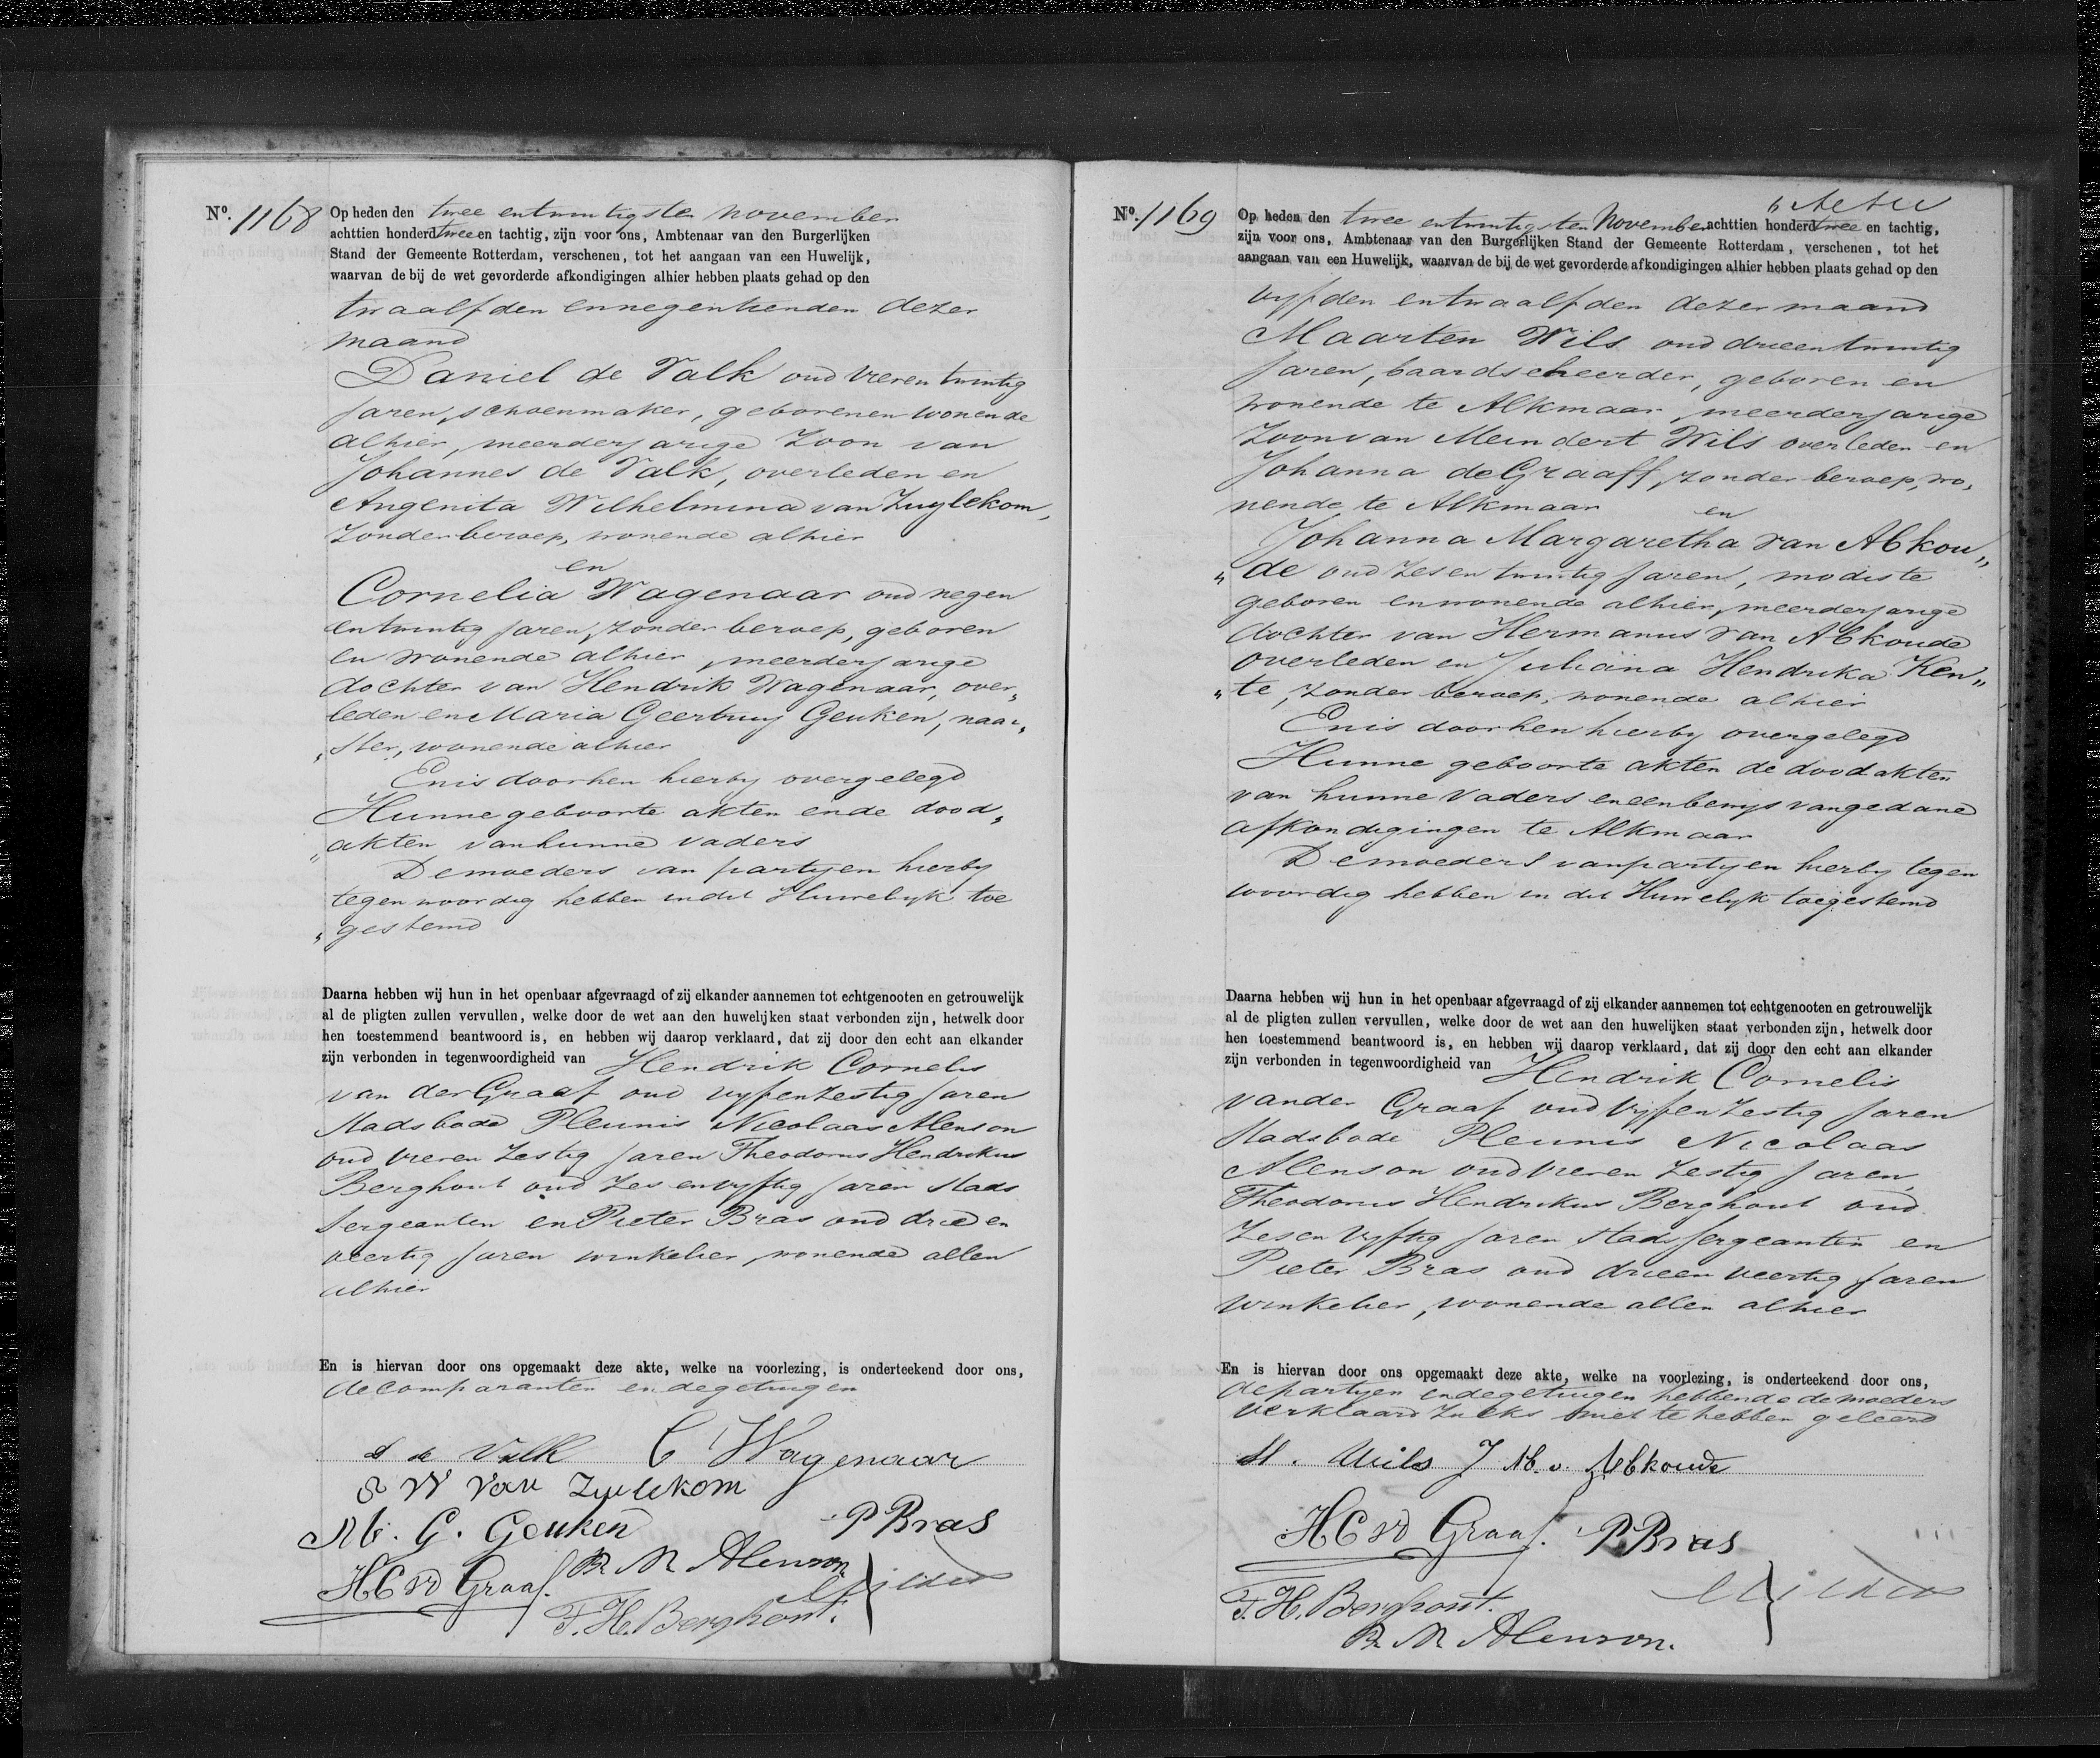 No. 1168
Op heden den twee entwintigsten november
achttien honderd twee en tachtig, zijn voor ons, Ambtenaar van den Burgerlijken
Stand der Gemeente Rotterdam, verschenen, tot het aangaan van een Huwelijk,
waarvan de bij de wet gevorderde afkondigingen alhier hebben plaats gehad op den
twaalfden ennegentienden dezer
maand
Daniel de Valk oud vierentwintig
Jaren, schoenmaker, geboren en wonende
alhier, meerderjarige Zoon van
Johannes de Valk, overleden en
Angenita Wilhelmina van Zuylekom,
Zonder beroep, wonende alhier
en
Cornelia Wagenaar oud negen
entwintig Jaren, zonder beroep, geboren
en wonende alhier, meerderjarige
dochter van Hendrik Wagenaar, over„
leden en Maria Geertruy Geuken, naai„
„ster, wonende alhier
En is door hen hierby overgelegd
Hunne geboorte akten en de dood„
„akten van hunne vaders
De moeders van partyen hierby
tegenwoordig hebben in dit Huwelyk toe
„gestemd
Daarna hebben wij hun in het openbaar afgevraagd of zij elkander aannemen tot echtgenooten en getrouwelijk
al de pligten zullen vervullen, welke door de wet aan den huwelijken staat verbonden zijn, hetwelk door
hen toestemmend beantwoord is, en hebben wij daarop verklaard, dat zij door den echt aan elkander
zijn verbonden in tegenwoordigheid van Hendrik Cornelis
van der Graaf oud vyfenzestig Jaren
Stadsbode Pleunis Nicolaas Alenson
oud vieren Zestig Jaren Theodorus Hendrikus
Berghout oud Zes envyftig Jaren Stads
Sergeanten en Pieter Bras oud drie en
veertig Jaren winkelier, wonende allen
alhier
En is hiervan door ons opgemaakt deze akte, welke na voorlezing, is onderteekend door ons,
de comparanten en de getuigen
d de Valk C Wagenaar
W van Zuilekom
M. G. Geuken P Bras
HC vd Graaf. P N Alenson
T. H. Berghout.
No. 1169
Op heden den twee entwintigsten November achttien honderd twee en tachtig,
zijn voor ons, Ambtenaar van den Burgerlijken Stand der Gemeente Rotterdam, verschenen, tot het
aangaan van een Huwelijk, waarvan de bij de wet gevorderde afkondigingen alhier hebben plaats gehad op den
vyfden entwaalfden dezer maand
Maarten Wils oud drieentwintig
Jaren, baardscheerder, geboren en
wonende te Alkmaar, meerderjarige
Zoon van Meindert Wils overleden en
Johanna de Graaff, zonder beroep, wo„
nende te Alkmaar en
Johanna Margaretha van Abkou„
„de oud zesentwintig Jaren, modiste
geboren en wonende alhier, meerderjarige
dochter van Hermanus van Abkoude
overleden en Juliana Hendrika Ken„
„te, zonder beroep, wonende alhier
En is door hen hierby overgelegd
Hunne geboorte akten de doodakten
van hunne vaders en een bewys van gedane
afkondigingen te Alkmaar
De moeders van partyen hierby tegen
woordig hebben in dit Huwelyk toegestemd
Daarna hebben wij hun in het openbaar afgevraagd of zij elkander aannemen tot echtgenooten en getrouwelijk
al de pligten zullen vervullen, welke door de wet aan den huwelijken staat verbonden zijn, hetwelk door
hen toestemmend beantwoord is, en hebben wij daarop verklaard, dat zij door den echt aan elkander
zijn verbonden in tegenwoordigheid van Hendrik Cornelis
van der Graaf oud Vyfen Zestig Jaren
Stadsbode Pleunis Nicolaas
Alenson oud vieren Zestig Jaren
Theodorus Hendrikus Berghout oud
Zesen Vyftig Jaren Stads Sergeanten en
Pieter Bras oud drieen veertig Jaren
winkelier, wonende allen alhier
En is hiervan door ons opgemaakt deze akte, welke na voorlezing, is onderteekend door ons,
de partyen en de getuigen hebbende de moeders
verklaard zulks niet te hebben geleerd
M. Wils J M. v. Abkoude
HC vd Graaf. P Bras
T. H. Berghout.
P N Alenson.